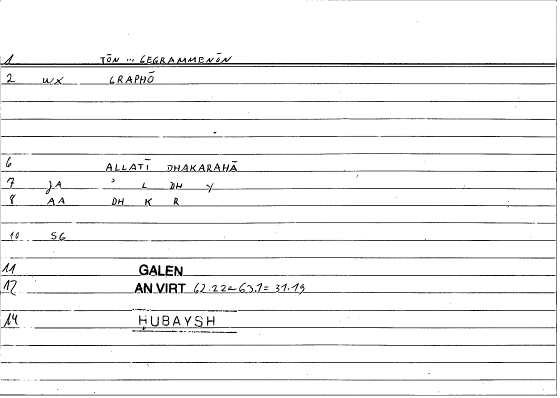 1 TŌN ... GEGRAMMENŌN
2 WX GRAPHŌ
6 ALLATĪ DHAKARAHĀ
7 JA ʾ L DH Y
8 AA DH K R
10 SG
11 GALEN
12 AN VIRT 62.22-63.1= 31.19
14 ḤUBAYSH